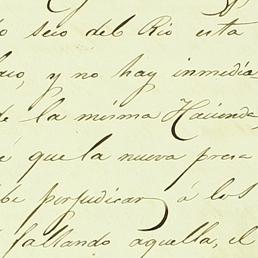 seco del Rio esta
y no hay inmedia
de la misma Hacienda,
que la nueva presa
be perjudicar á los
faltando aquella, el